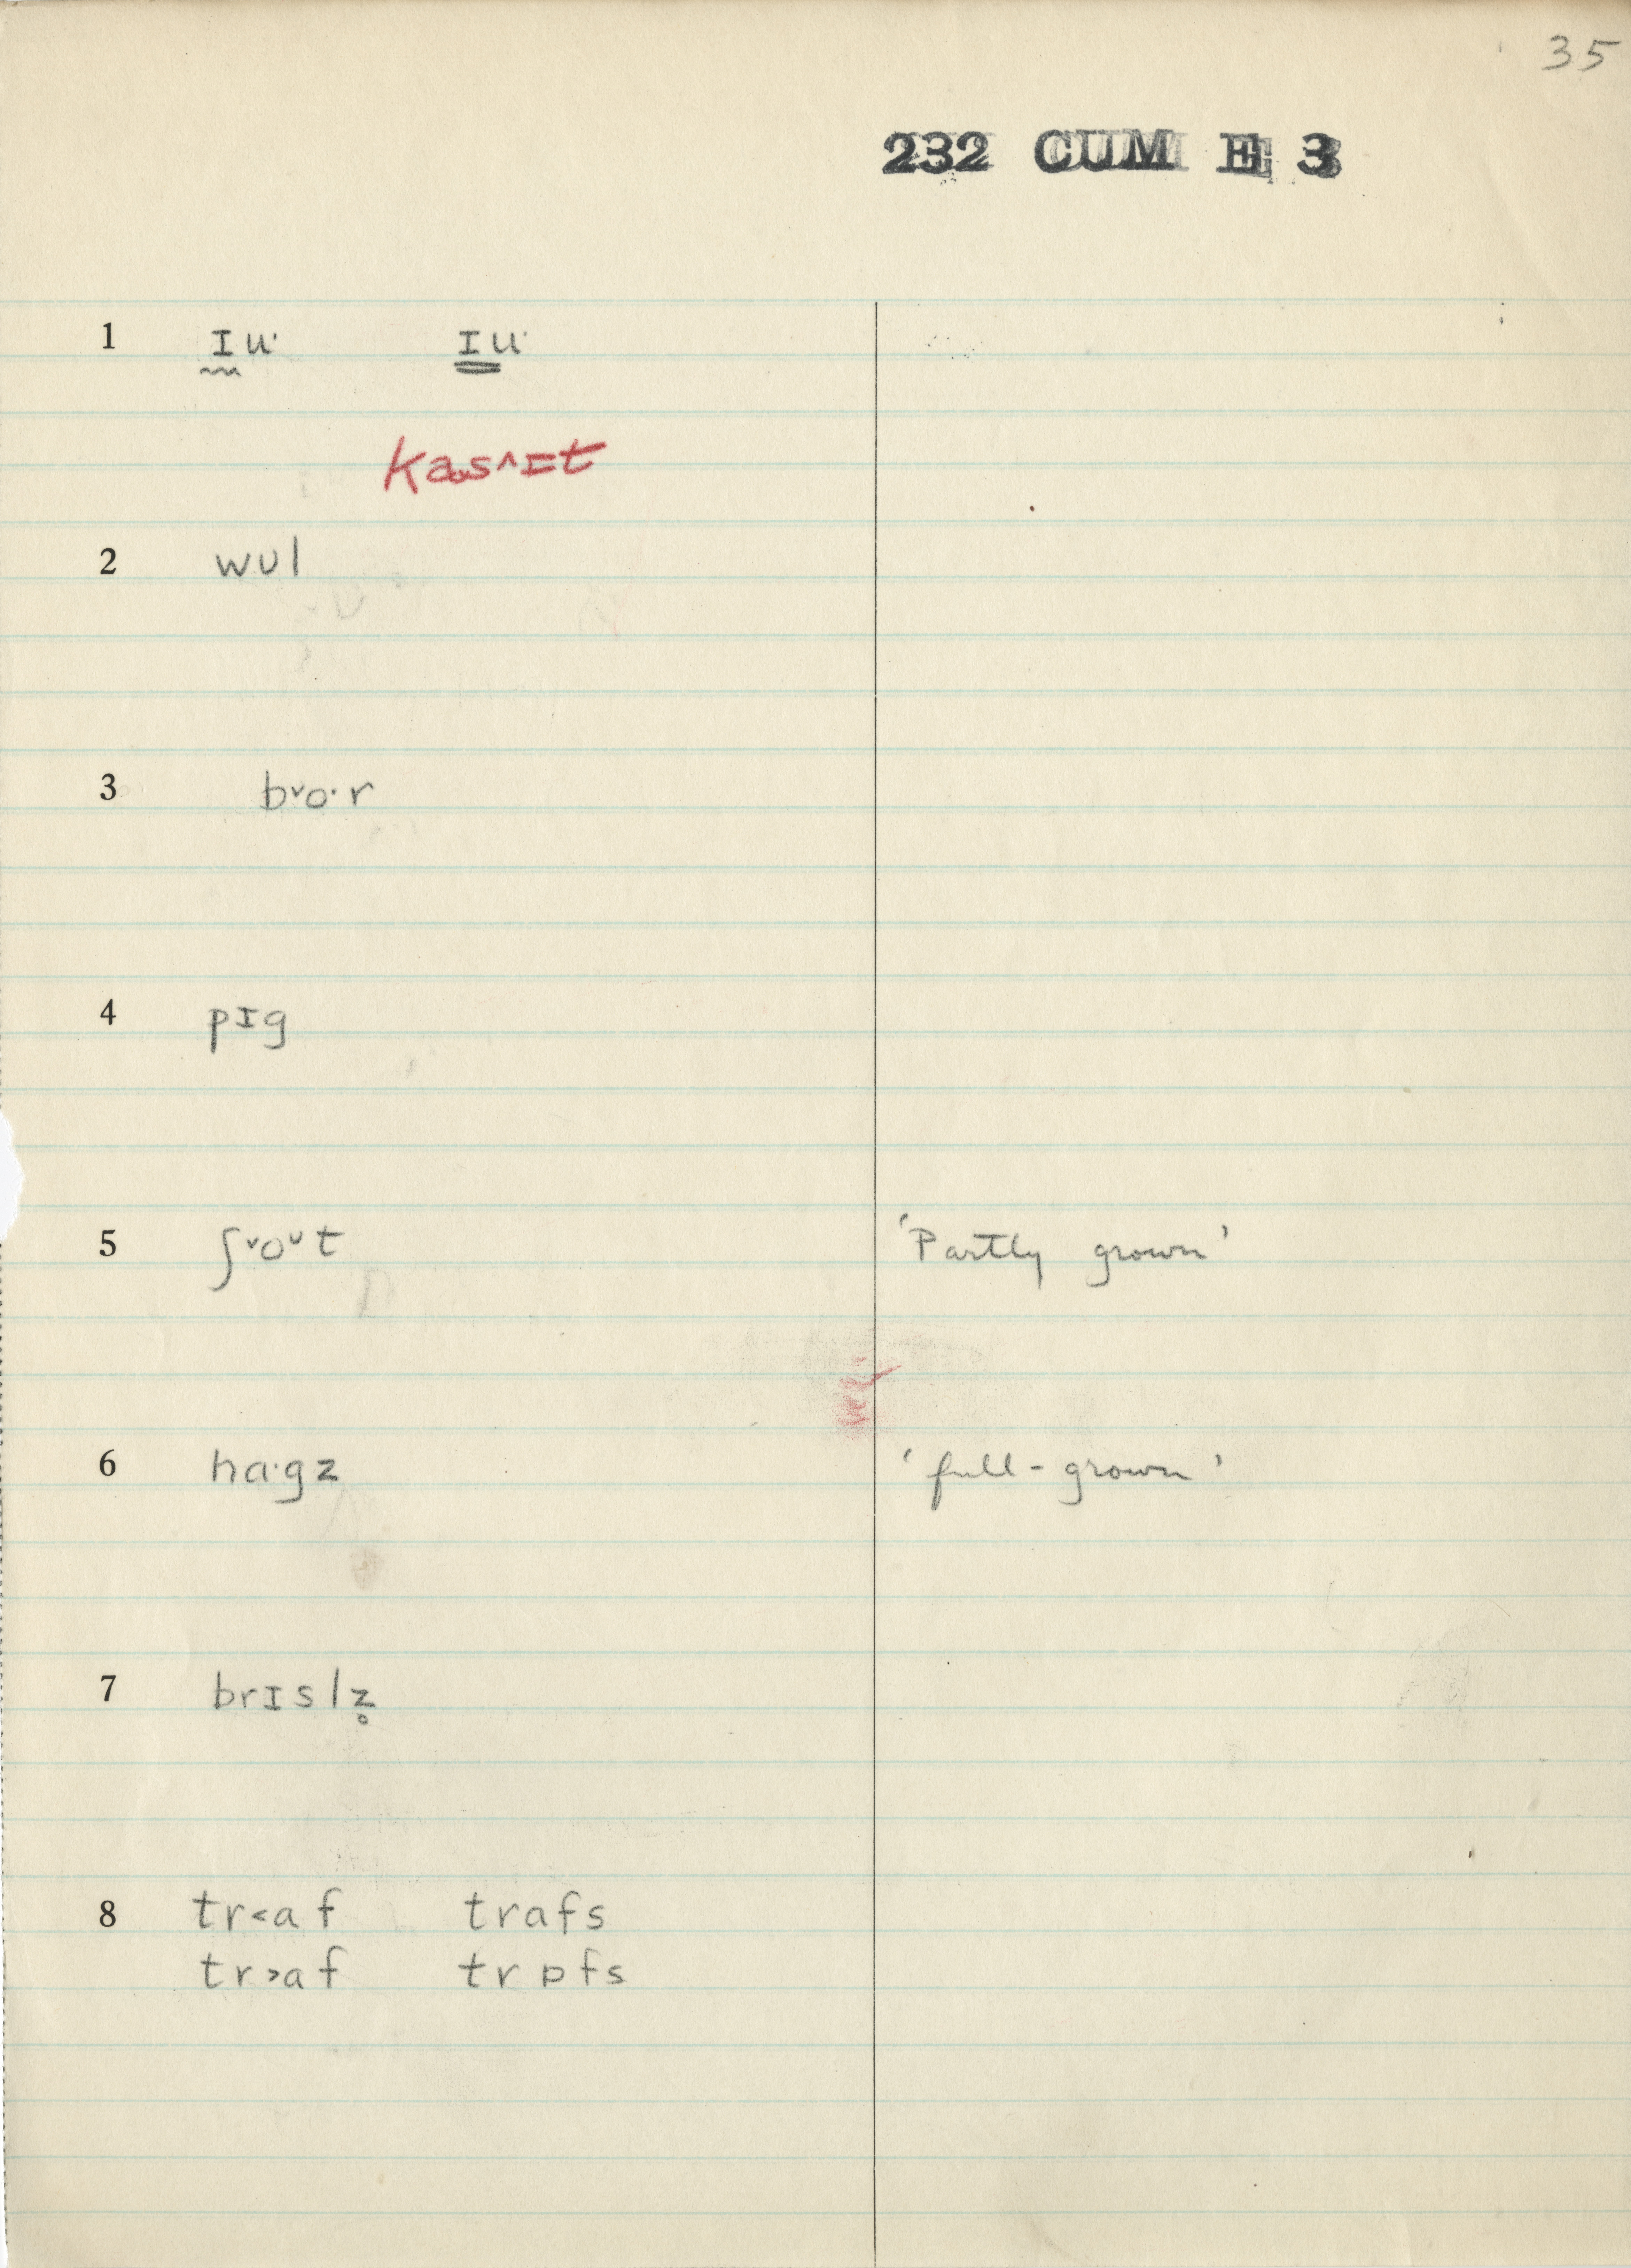 35
232 CUM E 3
1 ɪu· ɪu·
kas˄ɪt
2 wʊl
3 b˅o·r
4 pɪg
5 ʃ˅oᴜt 'Partly grown'
6 ha·gz 'full-grown'
7 brɪslz̥
8 tr˂af trafs
tr˃af trɒfs